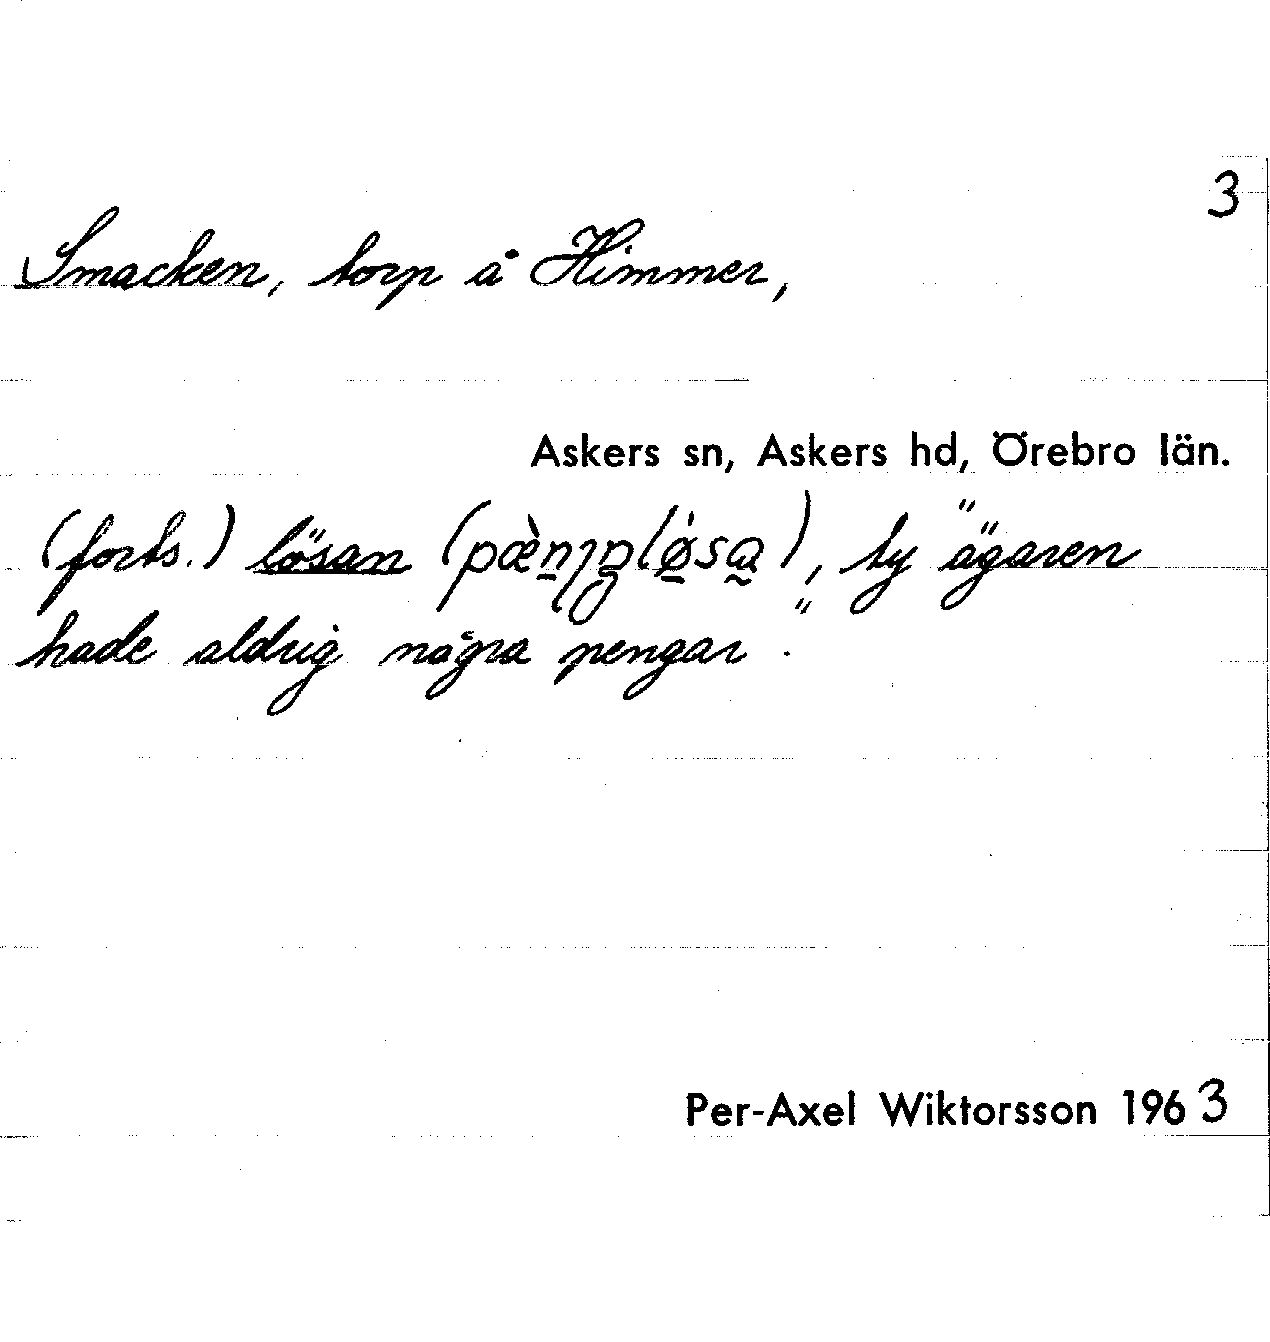 3
Smacken, torp å Himmer,
Askers sn, Askers hd, Örebro län.
(forts.) lösan (), ty "ägaren
hade aldrig några pengar".
Per-Axel Wiktorsson 1963